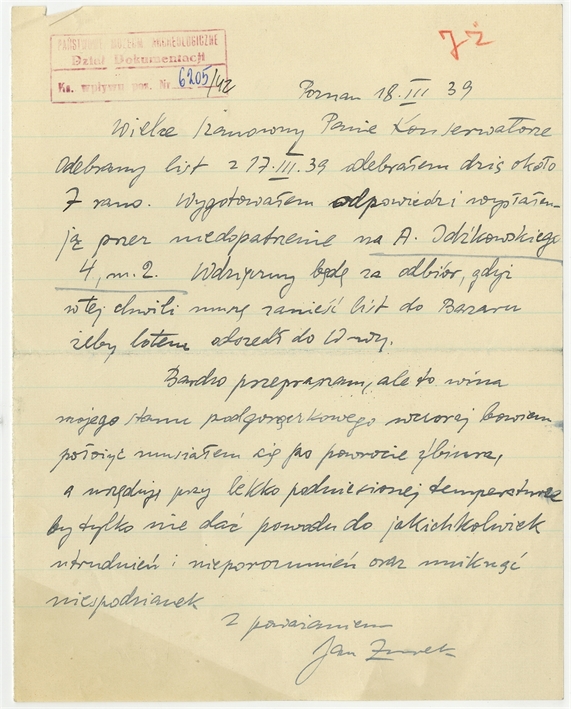 PAŃSTWOWE MUZEUM ARCHEOLOGICZNE
Dział Dokumentacji
Ks. wpływu pos. Nr 6205/42
JŻ
Poznan 18.III 39
Wielce Szanowny Panie Konserwatorze
Odebrany list z 17.III.39 odebrałem dziś około
7 rano. Wygotowałem odpowiedź i wysłałem
ją przez niedopatrzenie na A. Idźkowskiego
4, m. 2. Wdzięczny będę za odbiór, gdyż
w tej chwili muszę zanieść list do Bazaru
żeby lotem doszedł do W-wy.
Bardzo przepraszam, ale to wina
mojego stanu podgorączkowego wczoraj bowiem
położyć musiałem się po powrocie z biura,
a urzęduję przy lekko podniesionej temperaturze
by tylko nie dać powodu do jakichkolwiek
utrudnień i nieporozumień oraz uniknąć
niespodzianek
Z poważaniem
Jan Żurek